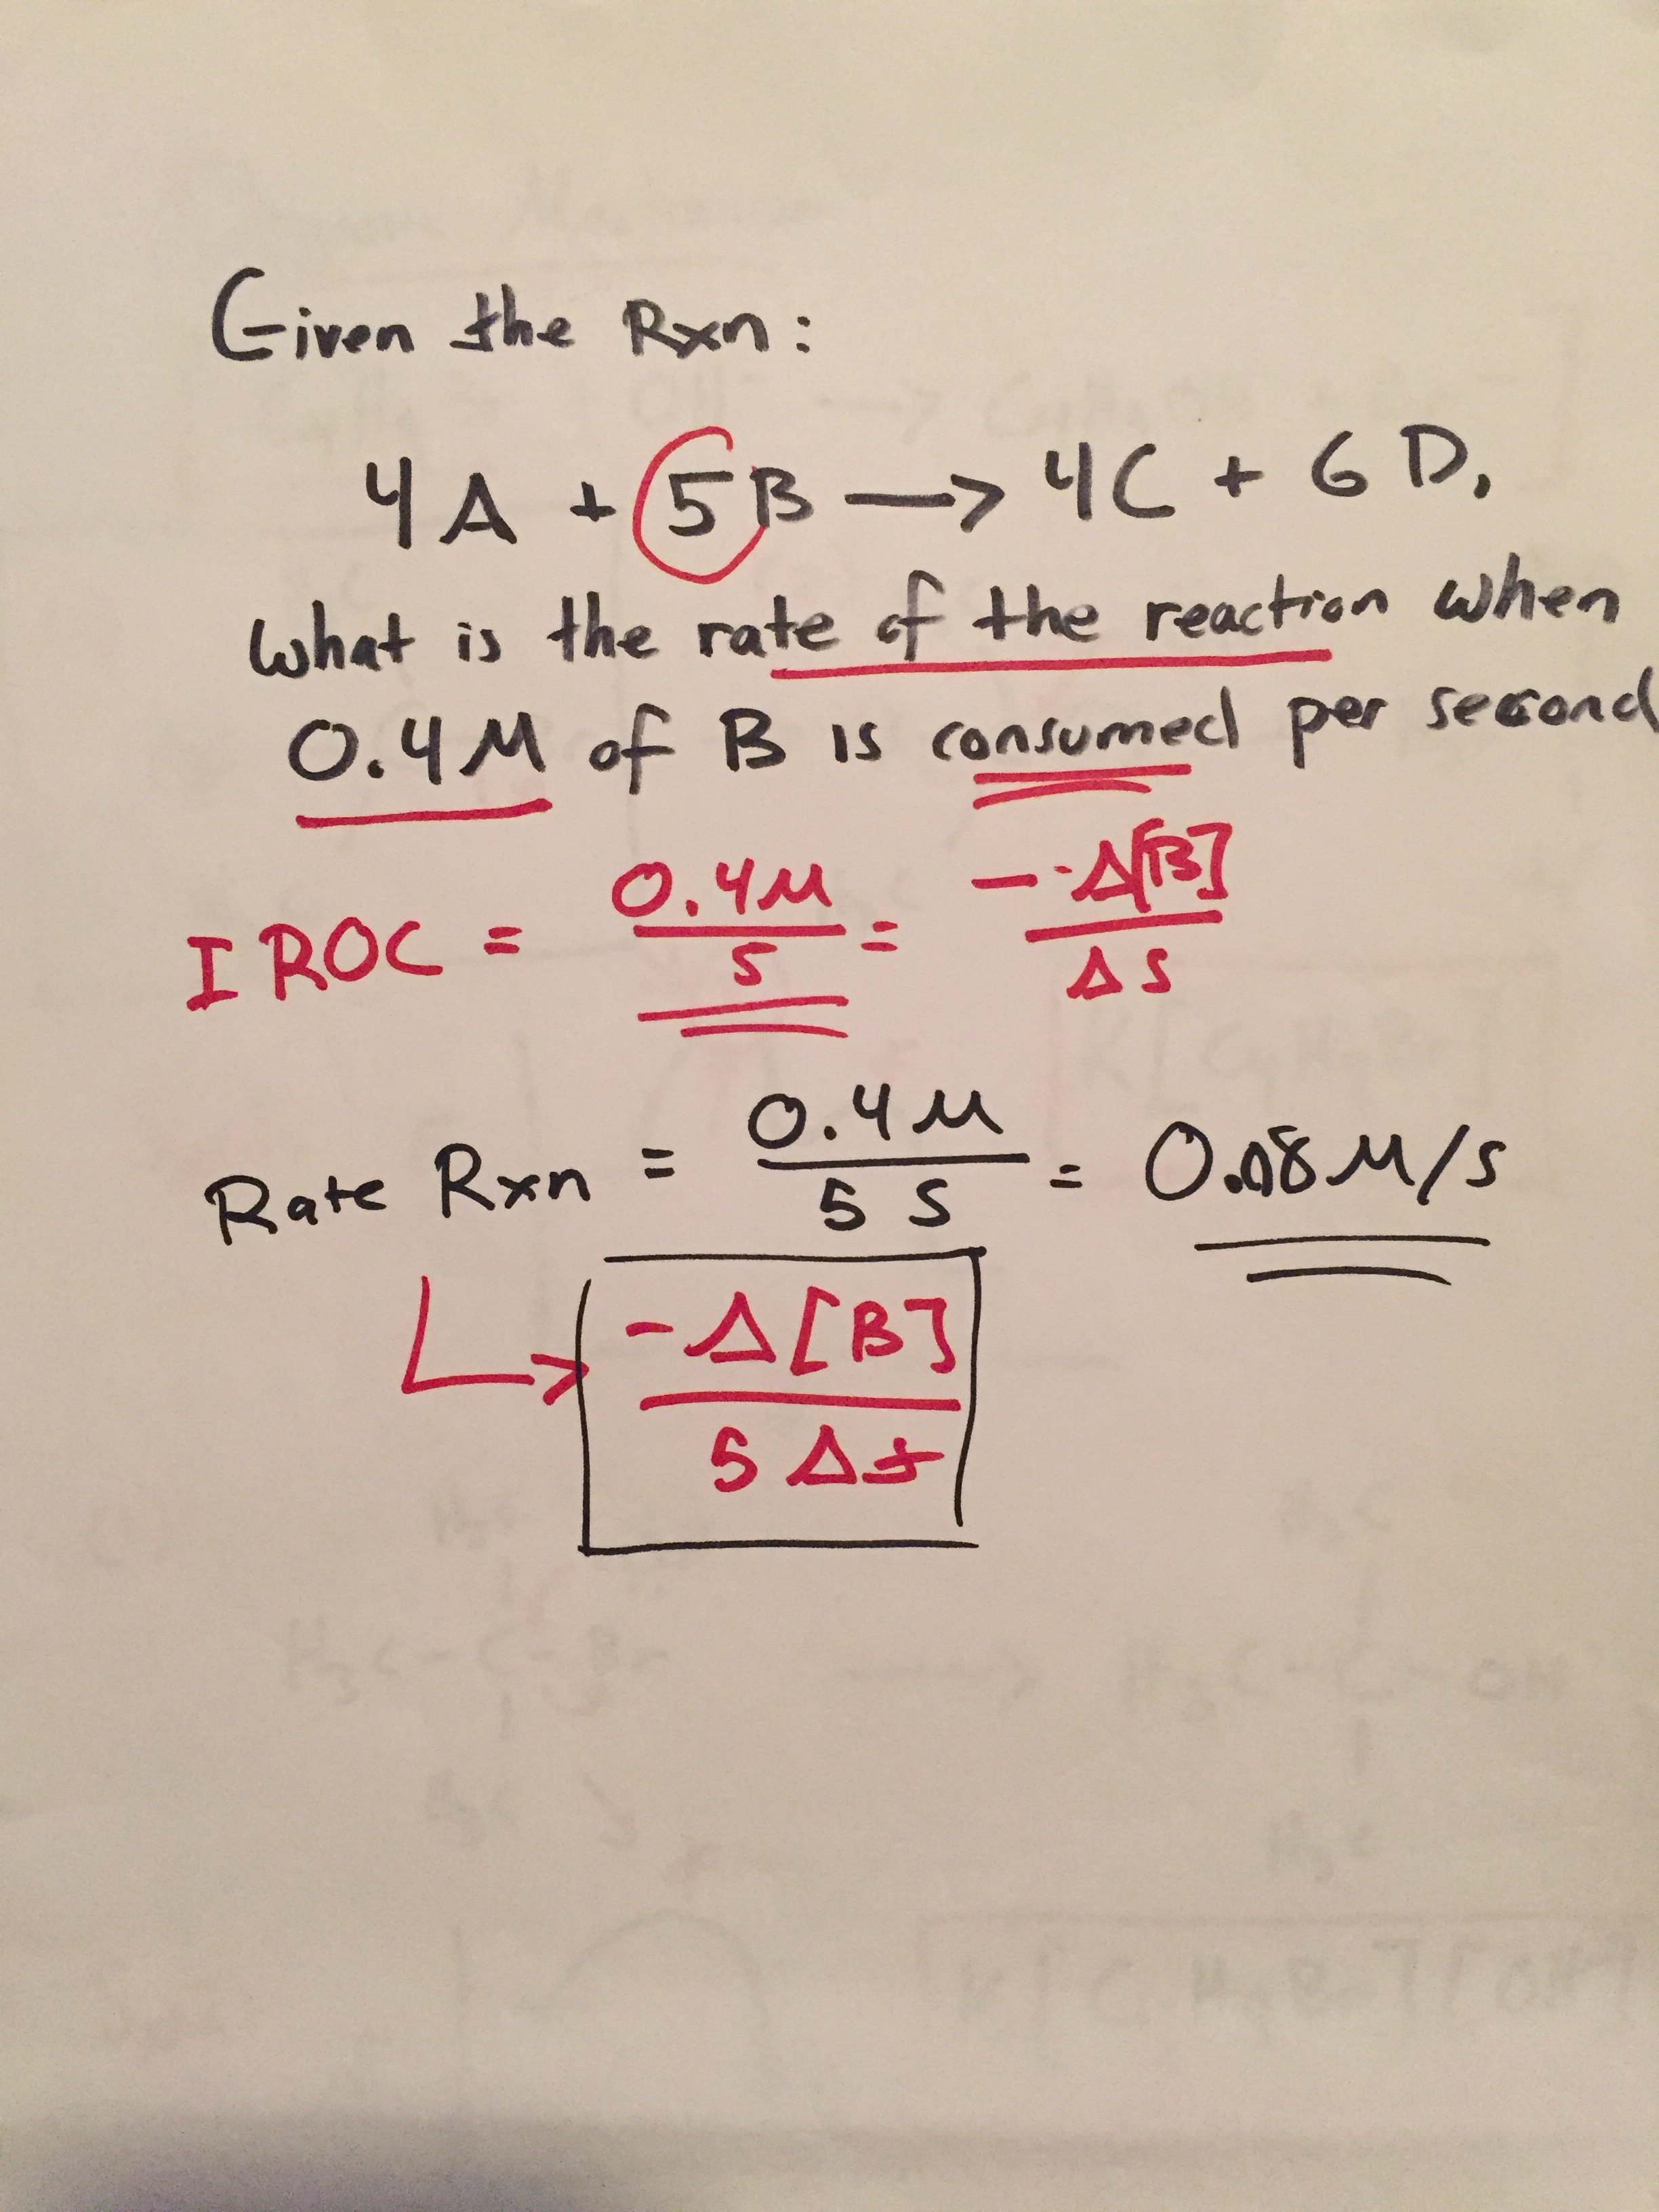 Given the Rxn:
4A + 5B → 4C + 6D.
What is the rate of the reaction when
0.4M of B is consumed per second
IROC = 0.4M/s = -Δ[B]/Δs
Rate Rxn = 0.4M/5 s = 0.08 M/s
-Δ[B]/5Δt